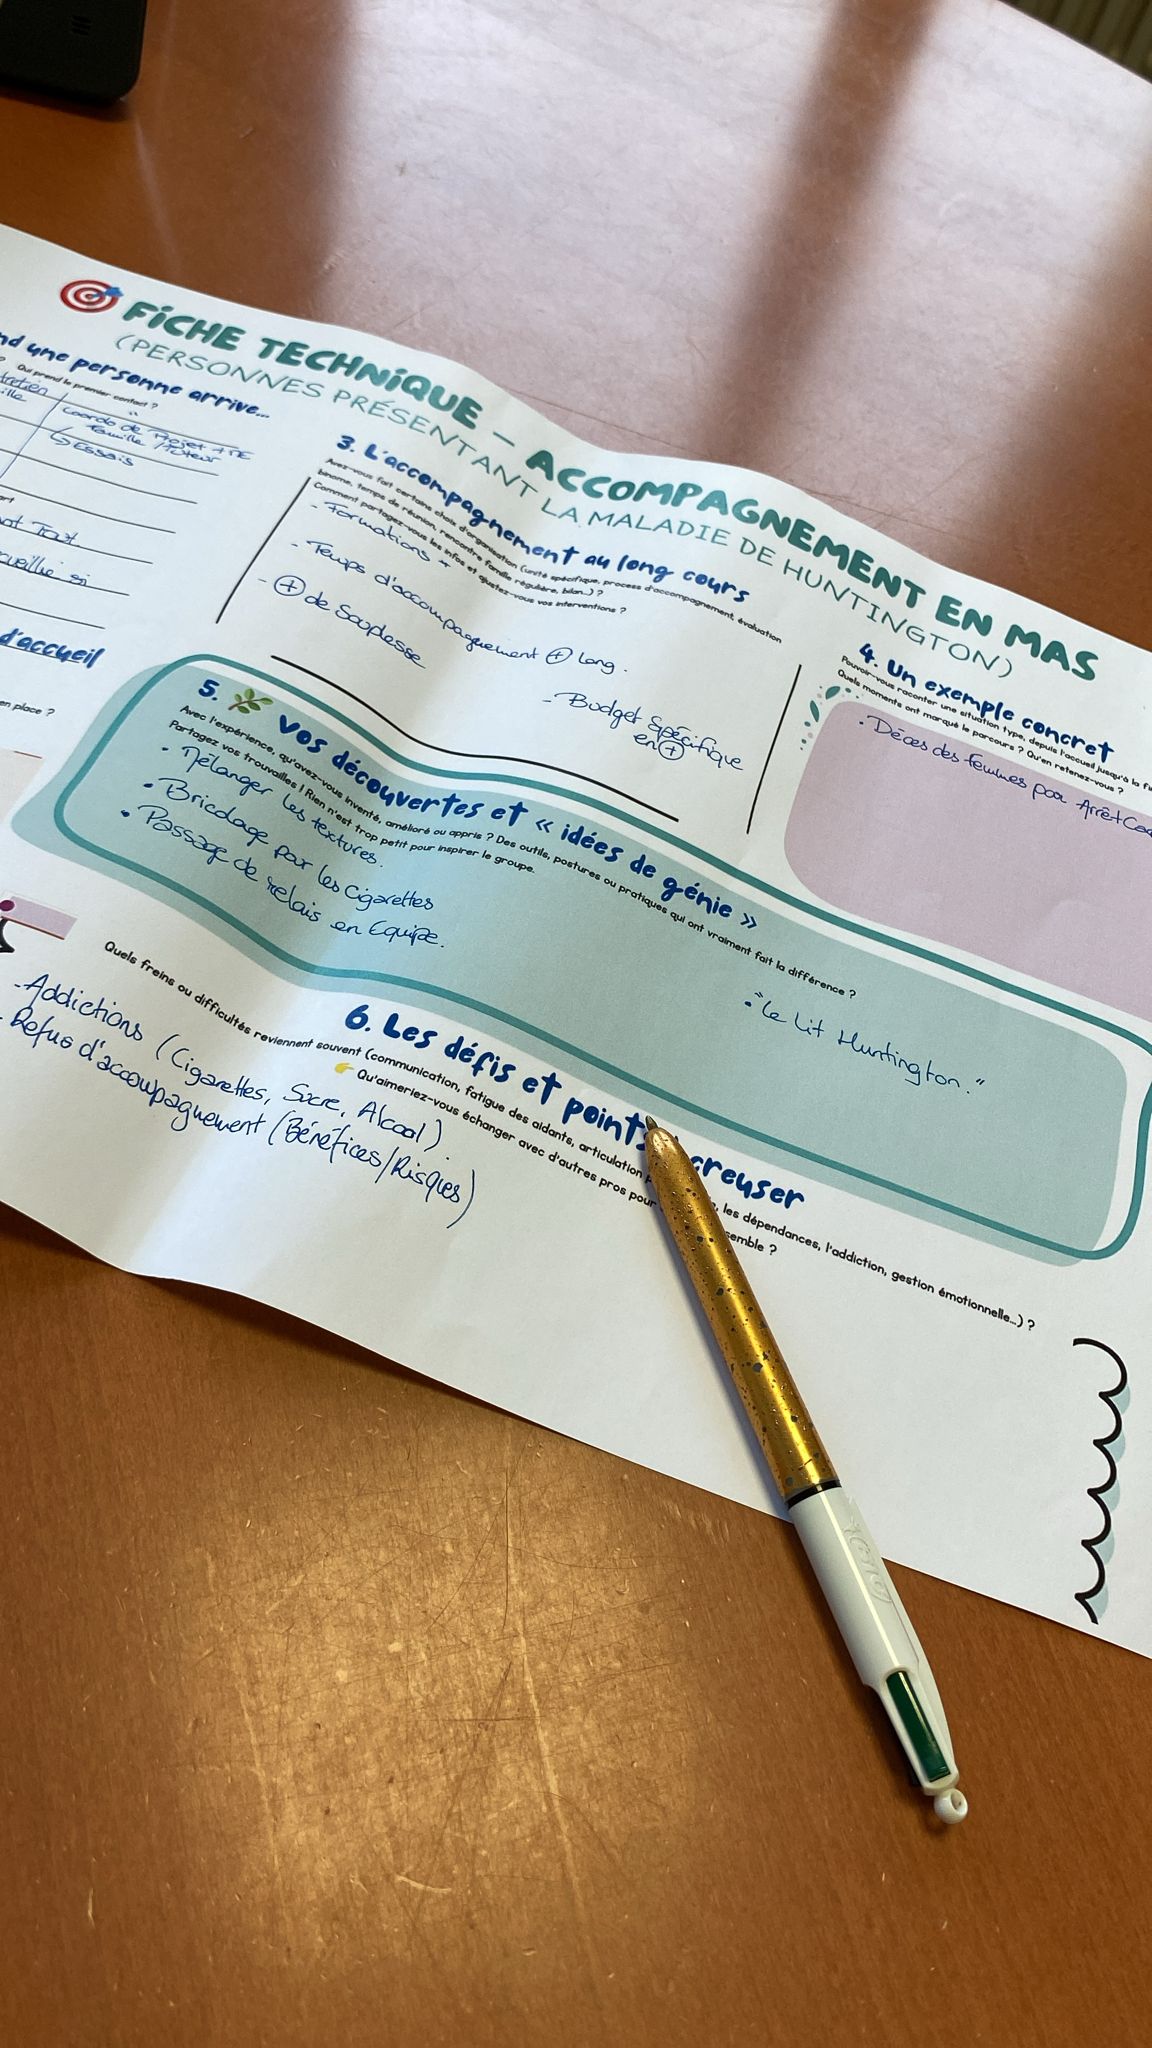 FICHE TECHNIQUE – ACCOMPAGNEMENT EN MAS
(PERSONNES PRÉSENTANT LA MALADIE DE HUNTINGTON)
une personne arrive...
Qui prend le premier contact ?
Coordo de Projet
famille / tuteur
Essais
d'accueil
en place ?
3. L'accompagnement au long cours
Avez-vous fait certains choix d'organisation (unité spécifique, process d'accompagnement, évaluation
binome, temps de réunion, rencontre famille régulière, bilan...) ?
Comment partagez-vous les infos et ajustez-vous vos interventions ?
- Formations
- Temps d'accompagnement + long.
- + de Souplesse
- Budget Spécifique
en +
4. Un exemple concret
Pouvoir-vous raconter une situation type, depuis l'accueil jusqu'à la
Quels moments ont marqué le parcours ? Qu'en retenez-vous ?
• Décès des femmes par Arrêt
5. Vos découvertes et « idées de génie »
Avec l'expérience, qu'avez-vous inventé, amélioré ou appris ? Des outils, postures ou pratiques qui ont vraiment fait la différence ?
Partagez vos trouvailles ! Rien n'est trop petit pour inspirer le groupe.
• Mélanger les textures.
• Bricolage pour les Cigarettes
• Passage de relais en Equipe.
• "Le Lit Huntington."
6. Les défis et points creuser
Quels freins ou difficultés reviennent souvent (communication, fatigue des aidants, articulation les dépendances, l'addiction, gestion émotionnelle...) ?
Qu'aimeriez-vous échanger avec d'autres pros pour
- Addictions (Cigarettes, Sucre, Alcool)
- Refus d'accompagnement (Bénéfices/Risques)